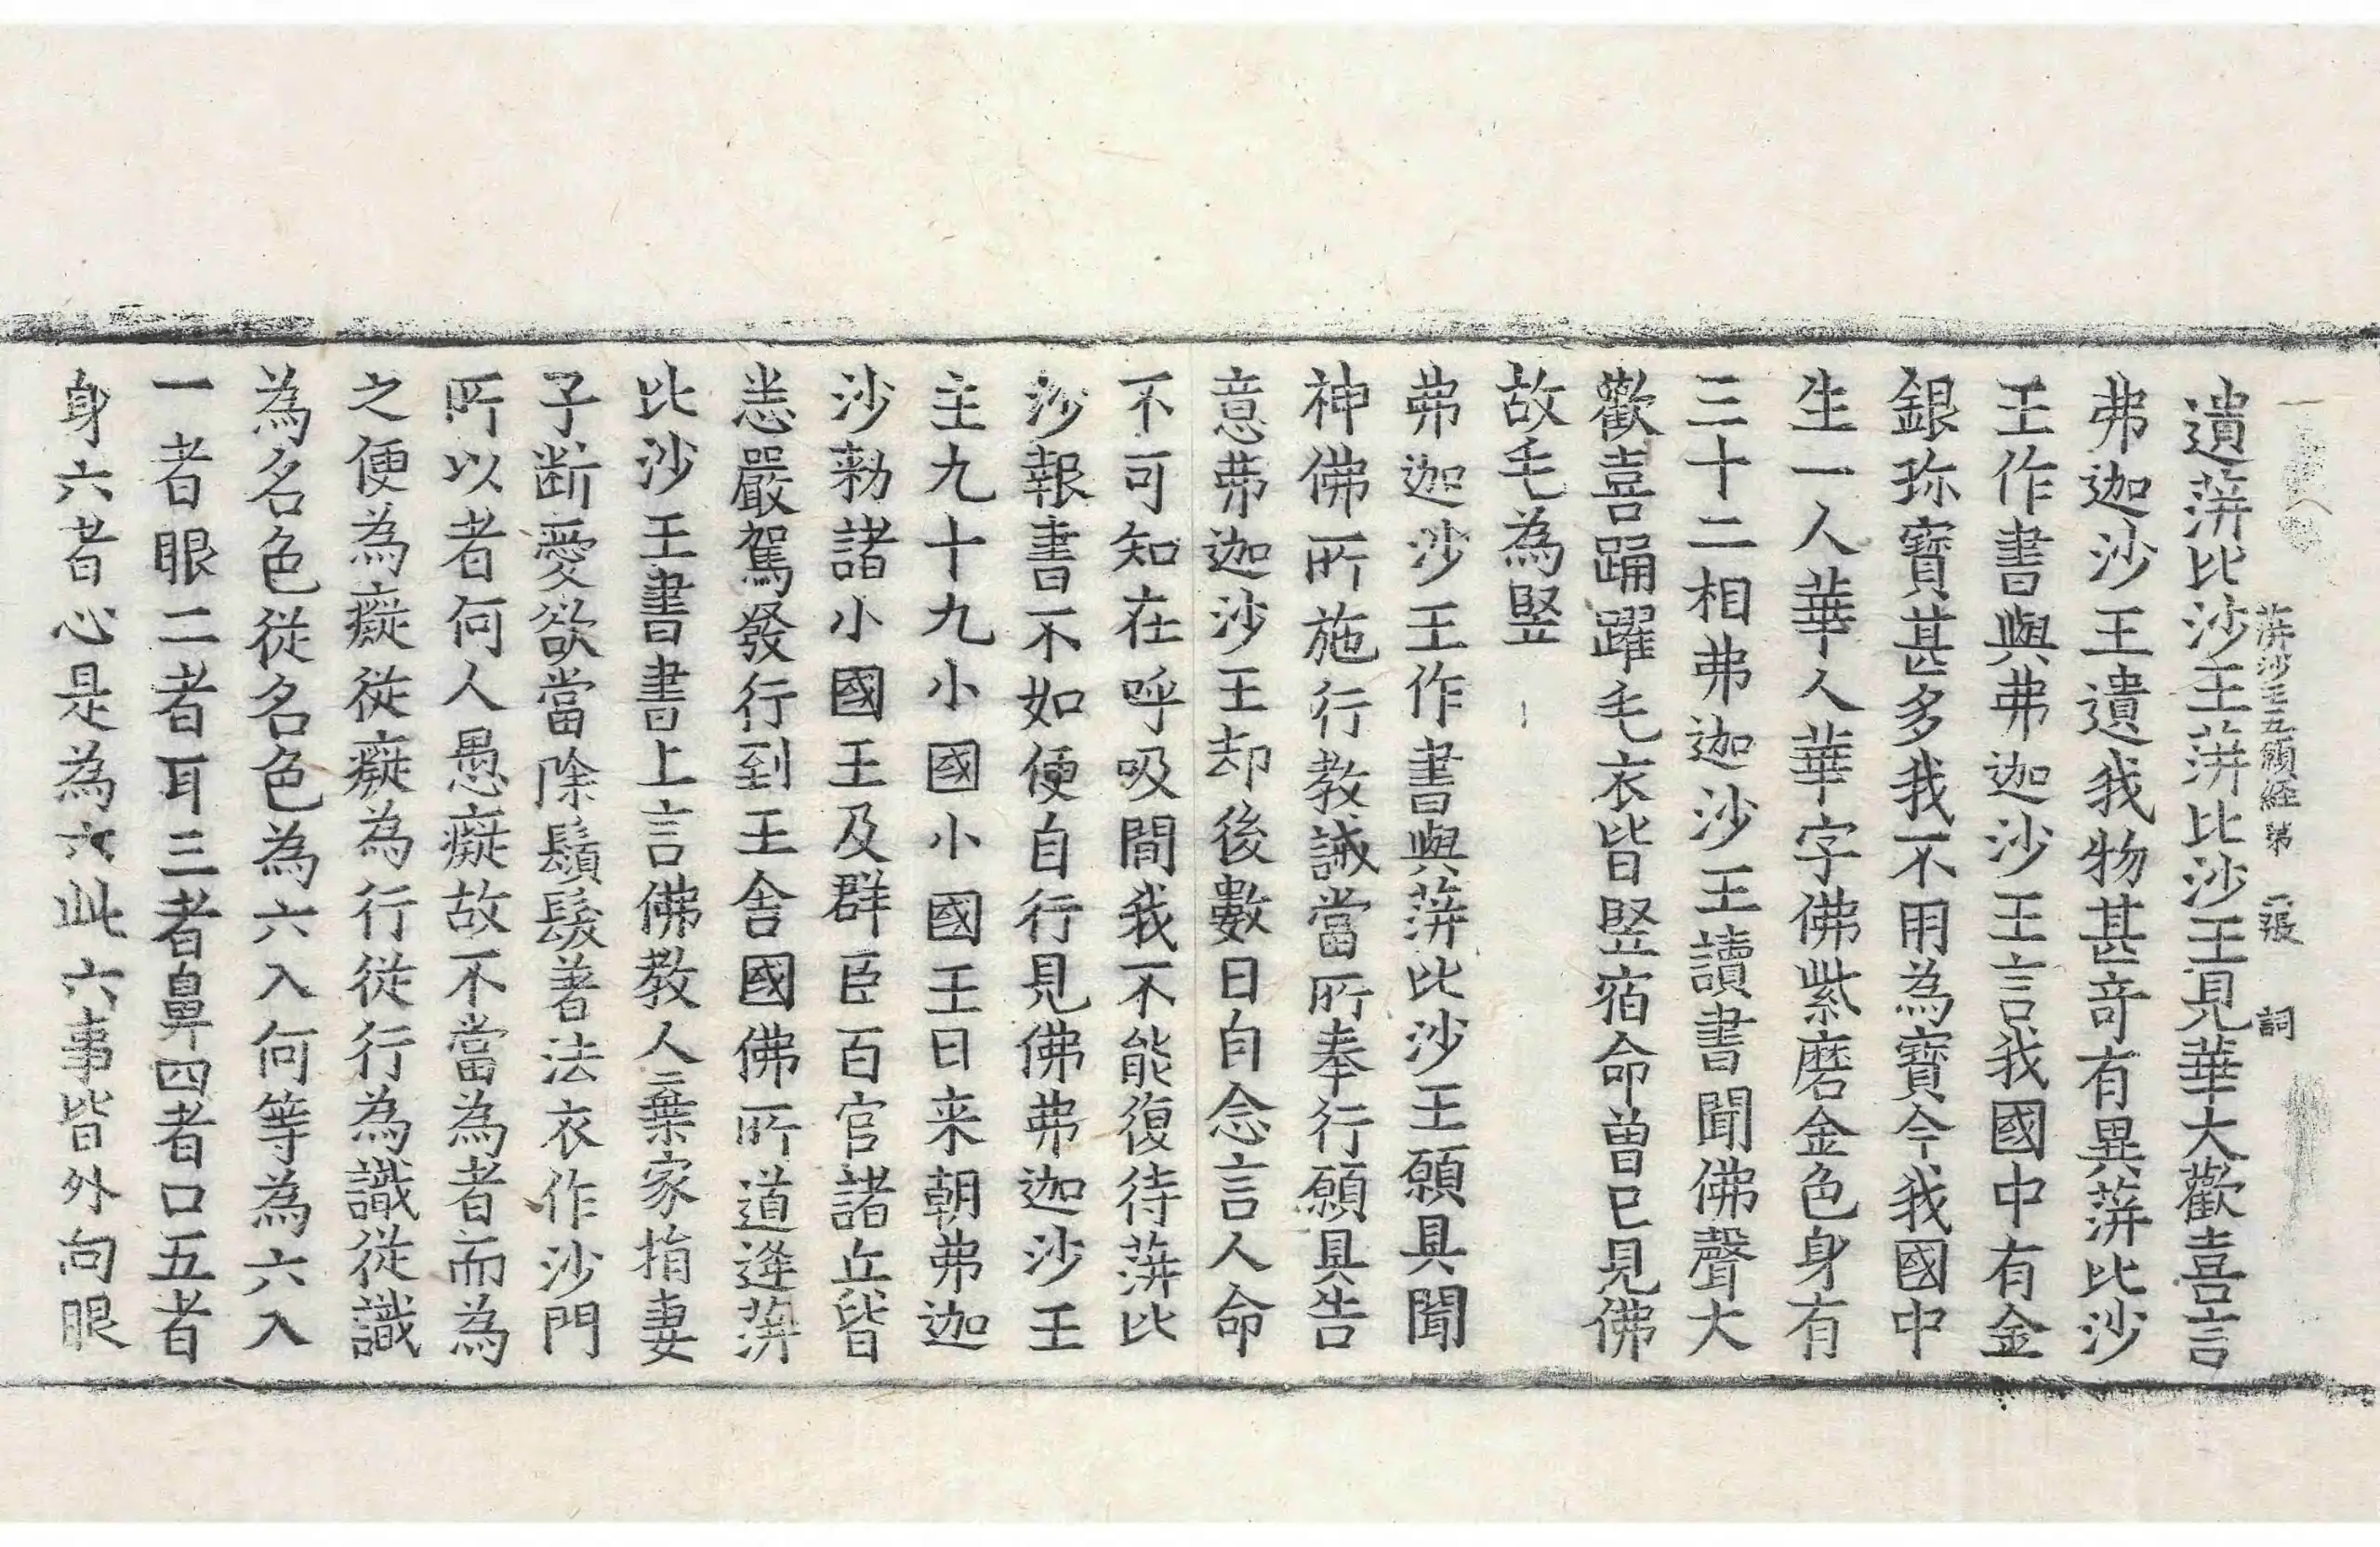 蓱沙王五願経第 二張 詞
遺蓱比沙王蓱比沙王見華大歡喜言
弗迦沙王遺我物甚竒有異蓱比沙
王作書與弗迦沙王言我國中有金
銀珎寶甚多我不用為寶今我國中
生一人華人華字佛紫磨金色身有
三十二相弗迦沙王讀書聞佛聲大
歡喜踊躍毛衣皆竪宿命曽巳見佛
故毛為竪
弗迦沙王作書與蓱比沙王願具聞
神佛所施行教誡當所奉行願具告
意弗迦沙王却後數日自念言人命
不可知在呼吸間我不能復待蓱比
沙報書不如便自行見佛弗迦沙王
主九十九小國小國王日来朝弗迦
沙勑諸小國王及群臣百官諸兵皆
悉嚴駕發行到王舍國佛所道逢蓱
比沙王書書上言佛教人棄家捐妻
子断愛欲當除鬚髮著法衣作沙門
所以者何人愚癡故不當為者而為
之便為癡從癡為行從行為識從識
為名色從名色為六入何等為六入
一者眼二者耳三者鼻四者口五者
身六者心是為六此六事皆外向眼